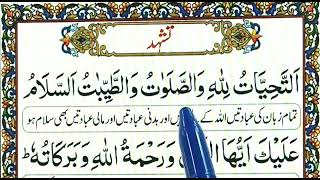 تشہد
اَلتَّحِيَّاتُ لِلّٰهِ وَالصَّلَوٰتُ وَالطَّيِّبٰتُ اَلسَّلَامُ
تمام زبان کی عبادتیں اللہ کے اور بدنی عبادتیں اور مالی عبادتیں بھی سلام ہو
عَلَيْكَ اَيُّهَا وَرَحْمَةُ اللهِ وَبَرَكَاتُهٗ ط